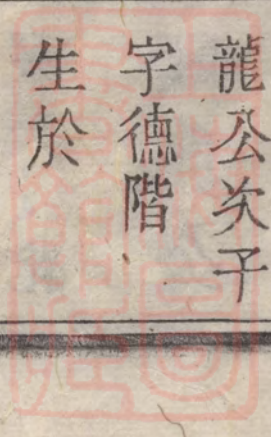 龍公次子
字德階
生於